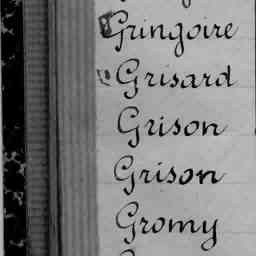 Gringoire
Grisard
Grison
Grison
Gromy